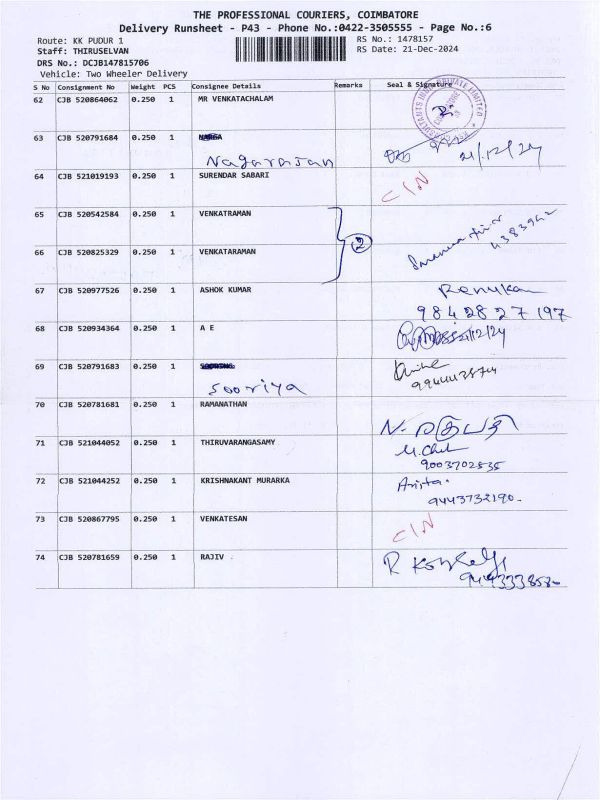 THE PROFESSIONAL COURIERS, COIMBATORE
Delivery Runsheet - P43 - Phone No.:0422-3505555 - Page No.:6
Route: KK PUDUR 1 RS No.: 1478157
Staff: THIRUSELVAN RS Date: 21-Dec-2024
DRS No.: DCJB147815706
Vehicle: Two Wheeler Delivery
S No Consignment No Weight PCS Consignee Details Remarks Seal & Signature
62 CJB 520864062 0.250 1 MR VENKATACHALAM
63 CJB 520791684 0.250 1
Nagarajan 21/12/24
64 CJB 521019193 0.250 1 SURENDAR SABARI C/N
65 CJB 520542584 0.250 1 VENKATRAMAN
2
66 CJB 520825329 0.250 1 VENKATARAMAN
67 CJB 520977526 0.250 1 ASHOK KUMAR Renuka
9842827197
68 CJB 520934364 0.250 1 A E 21/12/24
69 CJB 520791683 0.250 1
Sooriya
70 CJB 520781681 0.250 1 RAMANATHAN
N. ரகுபதி
71 CJB 521044052 0.250 1 THIRUVARANGASAMY
9003702535
72 CJB 521044252 0.250 1 KRISHNAKANT MURARKA Anita.
9443732190.
73 CJB 520867795 0.250 1 VENKATESAN C/N
74 CJB 520781659 0.250 1 RAJIV